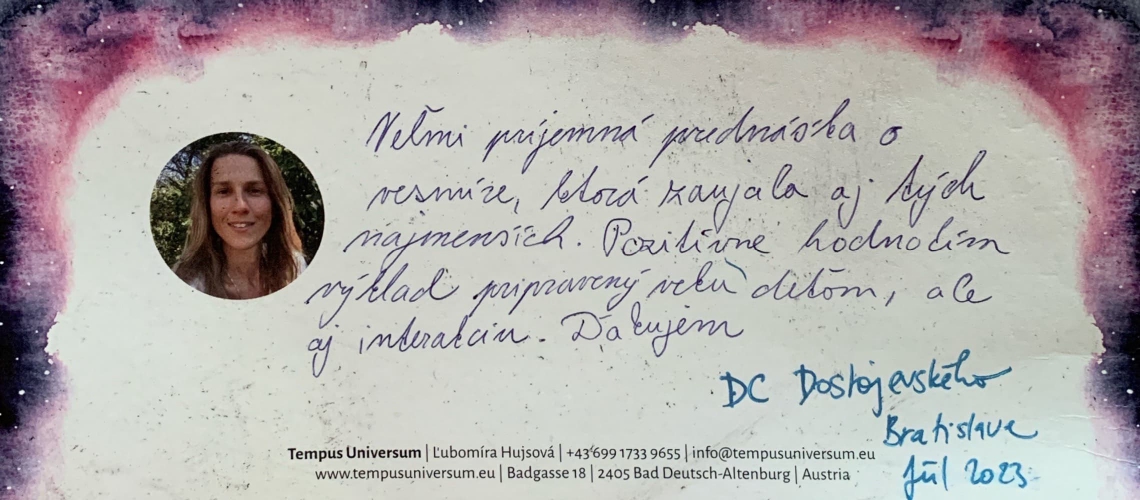 Veľmi príjemná prednáška o
vesmíre, ktorá zaujala aj tých
najmenších. Pozitívne hodnotím
výklad pripravený deťom, ale
aj interakciu. Ďakujem
DC Dostojevského
Bratislava
Júl 2023
Tempus Universum | Ľubomíra Hujsová | +43 699 1733 9655 | info@tempusuniversum.eu
www.tempusuniversum.eu | Badgasse 18 | 2405 Bad Deutsch-Altenburg | Austria